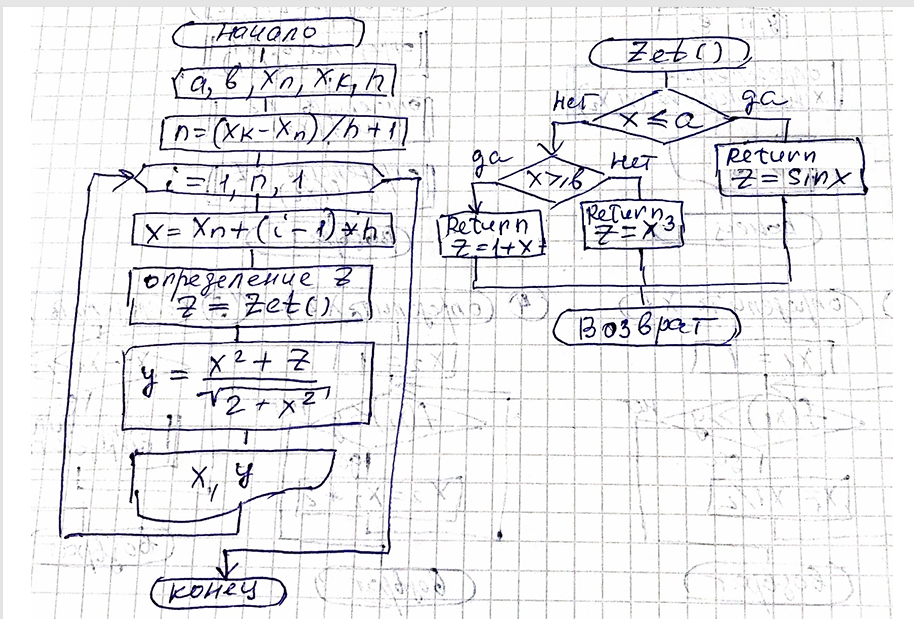 начало
a, в, Xп, Xк, h
n=(Xк-Xп)/h+1
i=1, n, 1
X=Xп+(i-1)*h
определение Z
Z=Zet()
y = x²+Z
√2+x²
X, y
конец
Zet()
нет
да
x≤a
Return
Z=sinx
да
x≥в
нет
Return
Z=1+x
Return
Z=x³
Возврат